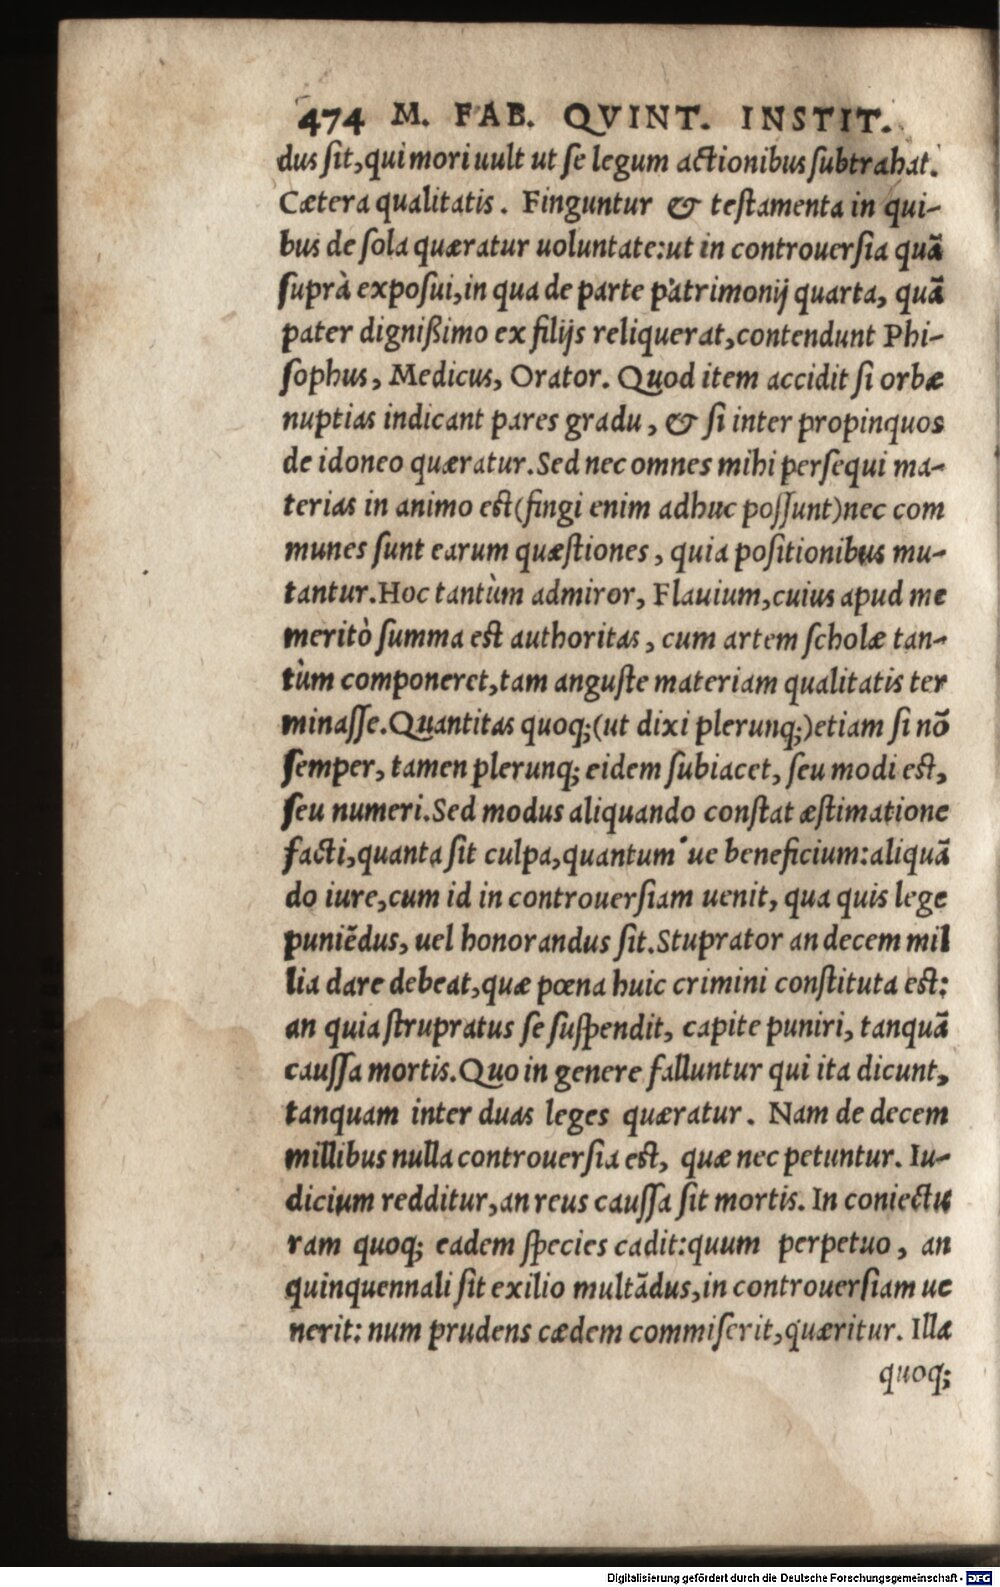 474 M. FAB. QVINT. INSTIT.
dus ſit,qui mori uult ut ſe legum actionibus ſubtrahat.
Cætera qualitatis. Finguntur & teſtamenta in qui-
bus de ſola quæratur uoluntate:ut in controuerſia quā
ſuprà expoſui,in qua de parte patrimonij quarta, quā
pater dignißimo ex filijs reliquerat,contendunt Phi-
ſophus, Medicus, Orator. Quod item accidit ſi orbæ
nuptias indicant pares gradu, & ſi inter propinquos
de idoneo quæratur.Sed nec omnes mihi perſequi ma-
terias in animo eſt(fingi enim adhuc poſſunt)nec com
munes ſunt earum quæſtiones, quia poſitionibus mu-
tantur.Hoc tantùm admiror, Flauium,cuius apud me
meritò ſumma eſt authoritas, cum artem ſcholæ tan-
tùm componeret,tam anguſte materiam qualitatis ter
minaſſe.Quantitas quoq;(ut dixi plerunq;)etiam ſi nō
ſemper, tamen plerunq; eidem ſubiacet, ſeu modi eſt,
ſeu numeri.Sed modus aliquando conſtat æſtimatione
facti,quanta ſit culpa,quantum ue beneficium:aliquā
do iure,cum id in controuerſiam uenit, qua quis lege
puniēdus, uel honorandus ſit.Stuprator an decem mil
lia dare debeat,quæ pœna huic crimini conſtituta eſt:
an quia ſtrupratus ſe ſuſpendit, capite puniri, tanquā
cauſſa mortis.Quo in genere falluntur qui ita dicunt,
tanquam inter duas leges quæratur. Nam de decem
millibus nulla controuerſia eſt, quæ nec petuntur. Iu-
dicium redditur,an reus cauſſa ſit mortis. In coniectu
ram quoq; eadem ſpecies cadit:quum perpetuo, an
quinquennali ſit exilio multādus,in controuerſiam ue
nerit: num prudens cædem commiſerit,quæritur. Illæ
quoq;
Digitalisierung gefördert durch die Deutsche Forschungsgemeinschaft - DFG